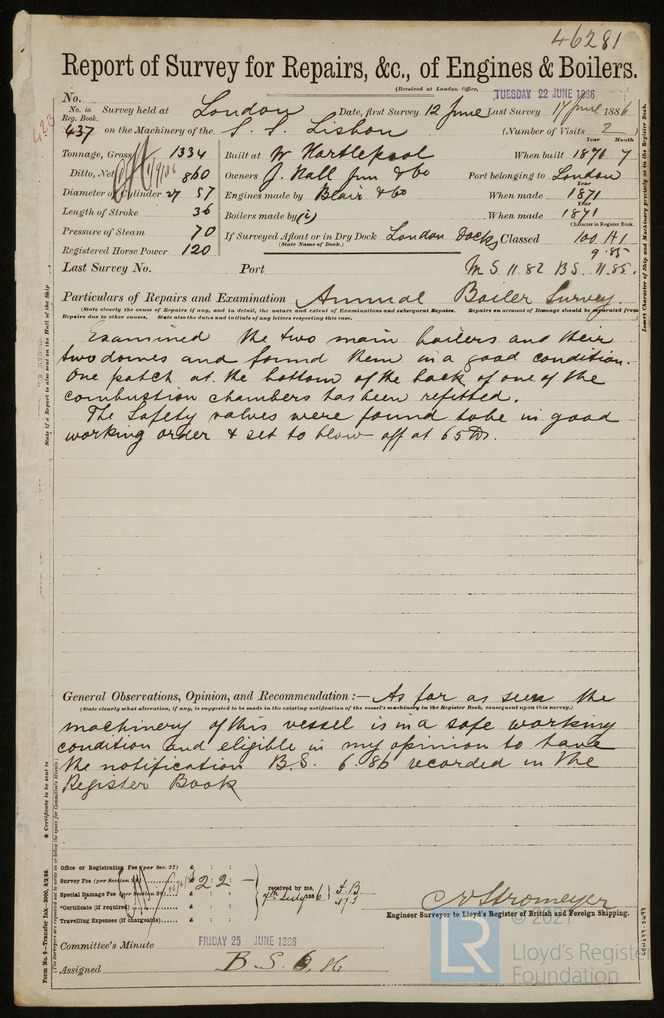 46281
Report of Survey for Repairs, &c., of Engines & Boilers.
(Received at London Office, TUESDAY 22 JUNE 1886
No.
No. in Reg. Book. Survey held at London Date, first Survey 12 June Last Survey 17 June 1886
423
437 on the Machinery of the S. S. Lisbon (Number of Visits 2)
Year Month
Tonnage, Gross 1334 Built at W Hartlepool When built 1871 7
Ditto, Net 860 Owners J. Hall Jun & Co Port belonging to London
Diameter of Cylinder 27 57 Engines made by Blair & Co When made 1871
Length of Stroke 36 Boilers made by (2) When made 1871
Pressure of Steam 70 If Surveyed Afloat or in Dry Dock London Docks Classed 100 A1
(State Name of Dock.)
Character in Register Book.
Registered Horse Power 120 9.85
Last Survey No. Port M S 11.82 B S. 11.85.
Particulars of Repairs and Examination Annual Boiler Survey.
(State clearly the cause of Repairs if any, and in detail, the nature and extent of Examinations and subsequent Repairs. Repairs on account of Damage should be separated from
Repairs due to other causes. State also the dates and initials of any letters respecting this case.
Examined the two main boilers and their
two domes and found them in a good condition.
One patch at the bottom of the back of one of the
combustion chambers has been refitted.
The Safety valves were found to be in good
working order & set to blow off at 65 lbs.
General Observations, Opinion, and Recommendation :— As far as seen the
(State clearly what alteration, if any, is suggested to be made in the existing notification of the vessel's machinery in the Register Book, consequent upon this survey.)
machinery of this vessel is in a safe working
condition and eligible in my opinion to have
the notification B.S. 6.86 recorded in the
Register Book
Office or Registration Fee (per Sec. 27) £ : :
Survey Fee (per Section 28) £ 2 : 2 : —
Special Damage Fee (per Section 28) £ : :
*Certificate (if required) £ : :
Travelling Expenses (if chargeable) £ : :
received by me,
C E Stromeyer
Engineer Surveyor to Lloyd's Register of British and Foreign Shipping.
Committee's Minute FRIDAY 25 JUNE 1886
Assigned B. S. 6. 86
© 2021
LR
Lloyd's Register
Foundation
State if a Report is also sent on the Hull of the Ship
* Certificate to be sent to
Form No. 8—Transfer Ink.
Insert Character of Ship and Machinery precisely as in the Register Book.